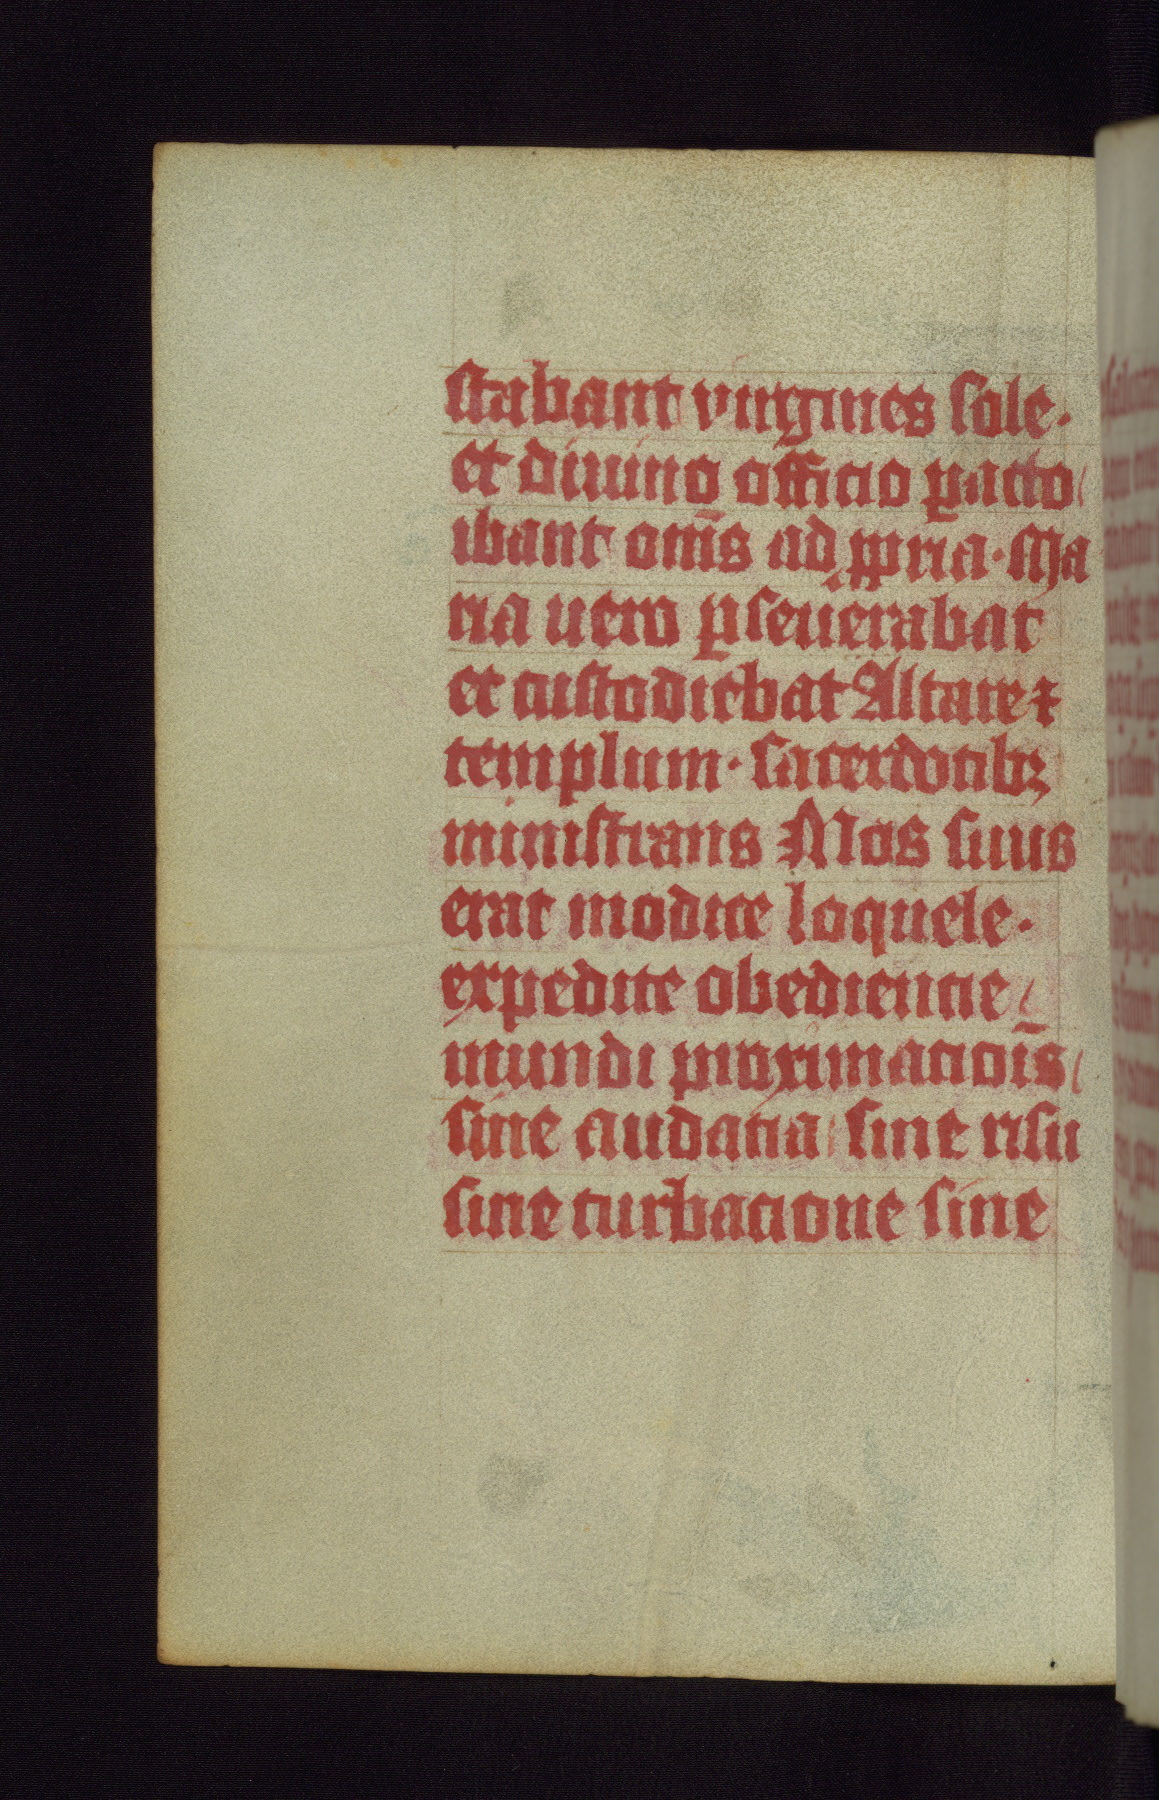 stabant virgines sole.
et diuino officio ꝑacto
ibant om̄s ad ꝓpria. Ma
ria uero ꝑseuerabat
et custodiebat Altare ⁊
templum. sacerdotibꝫ
ministrans Mos suus
erat modice loquele.
expedite obediencie
mundi proximaciōis
sine audacia sine risu
sine turbacione sine